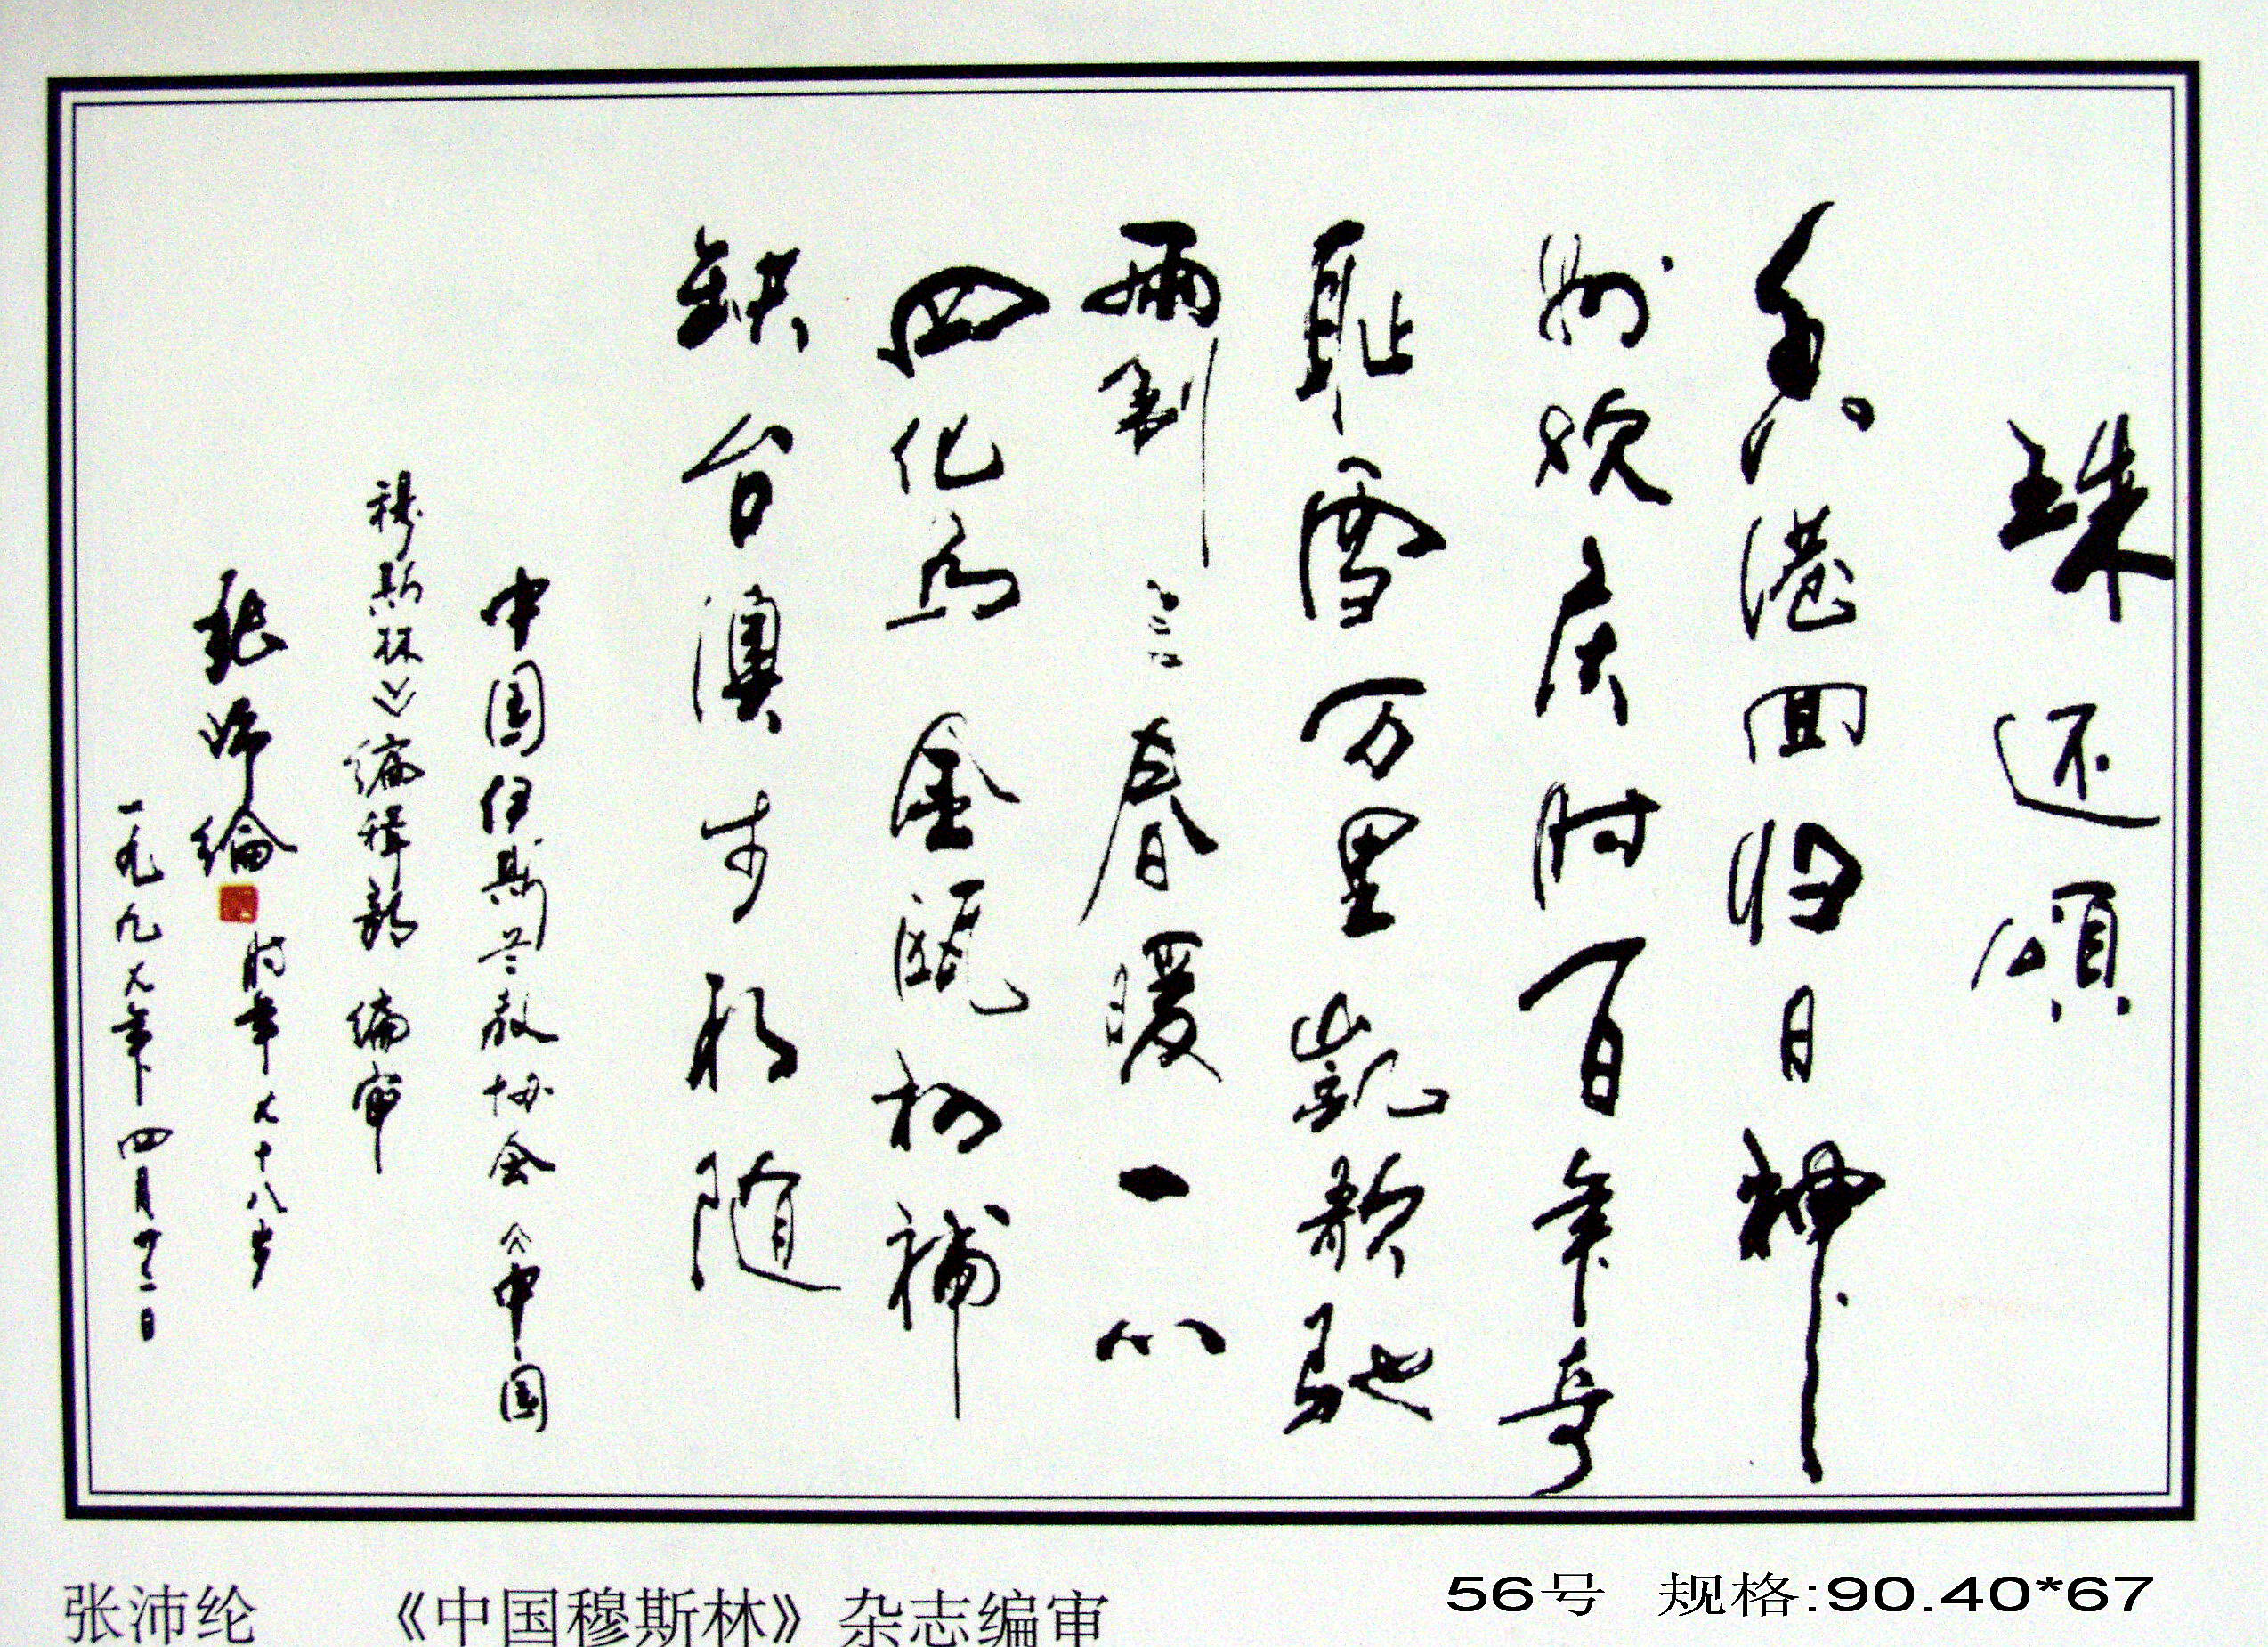 珠还颂
香港回归日神
州欢庆时百年奇
耻雪万里凯歌驰
两制三春暖一心
四化为金瓯初补
缺台澳步相随
中国伊斯兰教协会《中国
穆斯林》编辑部 编审
张沛纶
时年七十八岁
一九九七年四月十二日
张沛纶 《中国穆斯林》杂志编审
56号 规格:90.40*67